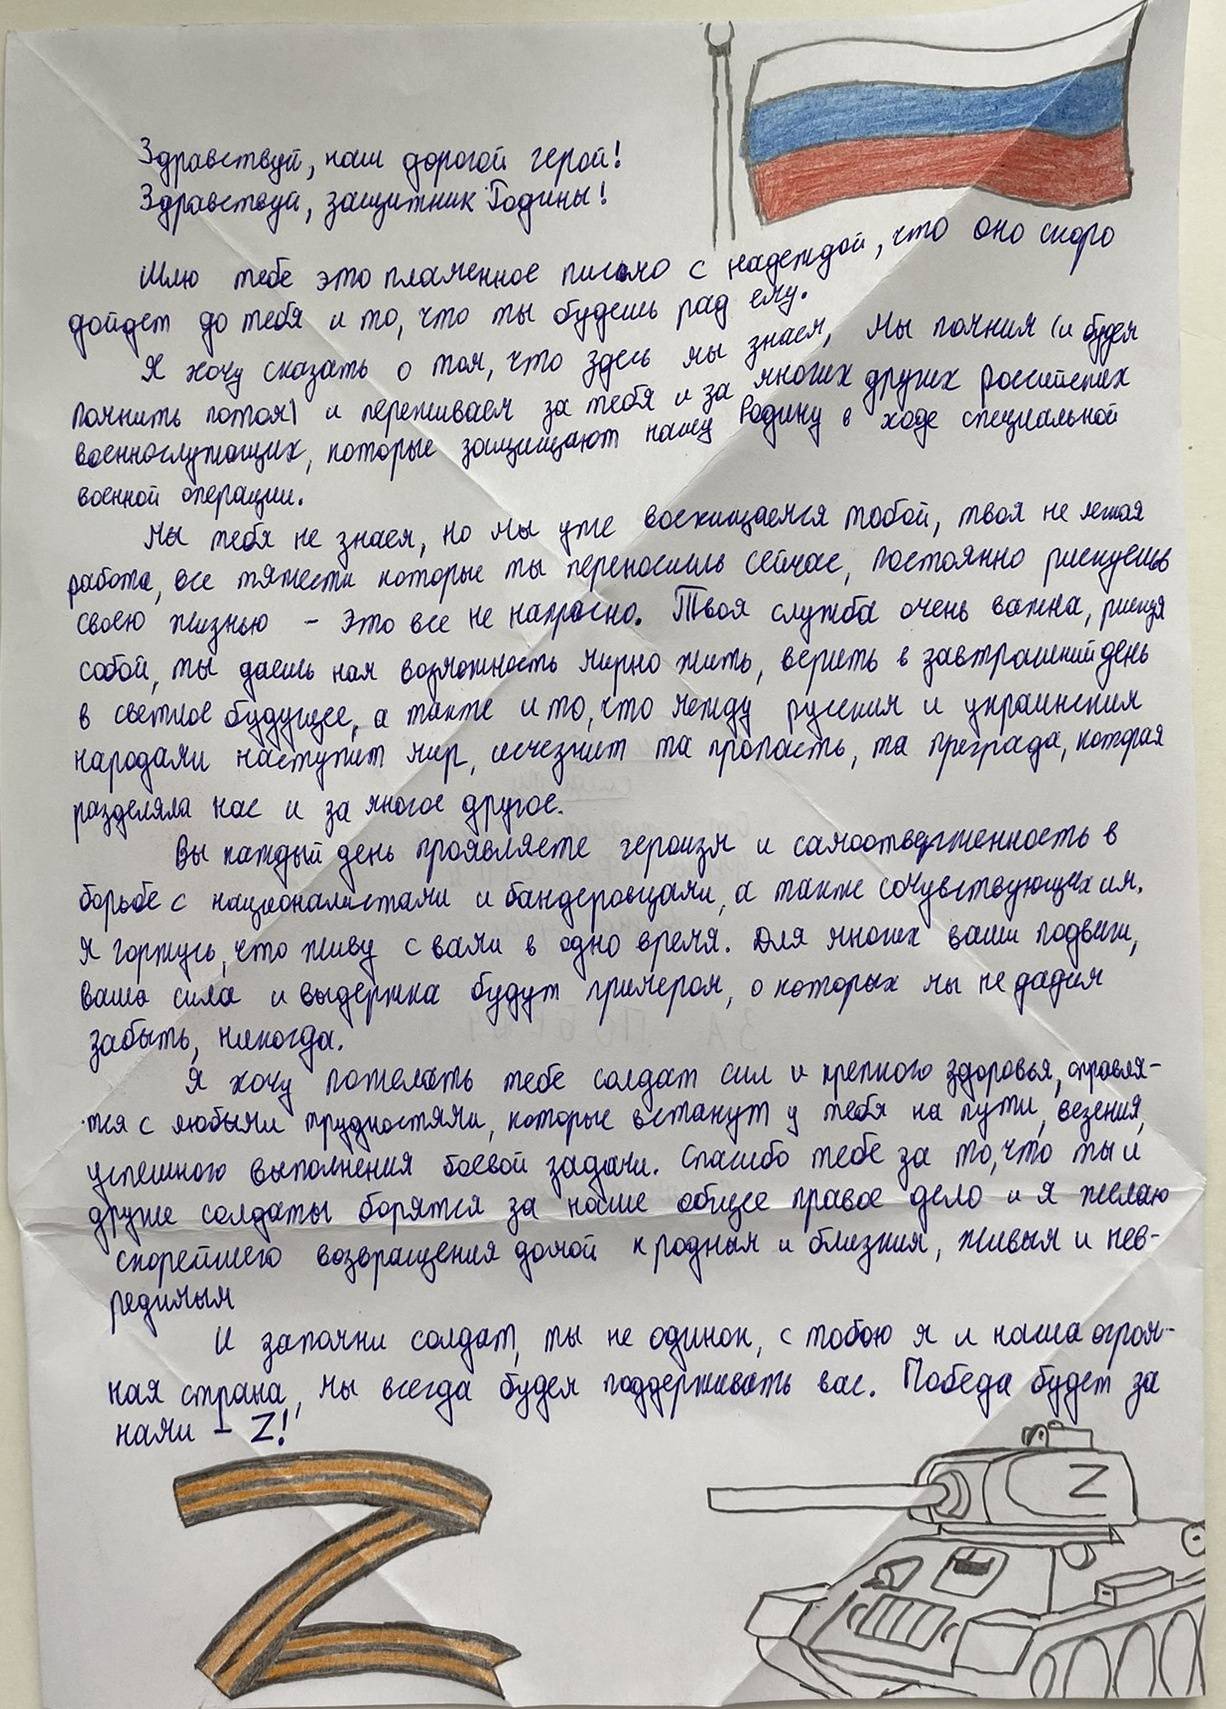 Здравствуй, наш дорогой герой!
Здравствуй, защитник Родины!
Шлю тебе это пламенное письмо с надеждой, что оно скоро
дойдет до тебя и то, что ты будешь рад ему.
Я хочу сказать о том, что здесь мы знаем, мы помним (и будем
помнить потом) и переживаем за тебя и за многих других российских
военнослужащих, которые защищают нашу Родину в ходе специальной
военной операции.
Мы тебя не знаем, но мы уже восхищаемся тобой, твоя не легкая
работа, все тяжести которые ты переносишь сейчас, постоянно рискуешь
своею жизнью - это все не напрасно. Твоя служба очень важна, рискуя
собой, ты даешь нам возможность мирно жить, верить в завтрашний день
в светлое будущее, а также и то, что между русским и украинским
народами наступит мир, исчезнет та пропасть, та преграда, которая
разделяла нас и за многое другое.
Вы каждый день проявляете героизм и самоотверженность в
борьбе с националистами и бандеровцами, а также сочувствующих им.
Я горжусь, что живу с вами в одно время. Для многих ваши подвиги,
ваша сила и выдержка будут примером, о которых мы не дадим
забыть, никогда.
Я хочу пожелать тебе солдат сил и крепкого здоровья, справля-
тся с любыми трудностями, которые встанут у тебя на пути, везения,
успешного выполнения боевой задачи. Спасибо тебе за то, что ты и
друже солдаты борятся за наше общее правое дело и я желаю
скорейшего возвращения домой к родным и близким, живым и нев-
редимым
И запомни солдат, ты не одинок, с тобою я и наша огром-
ная страна, мы всегда будем поддерживать вас. Победа будет за
нами - Z!
Z